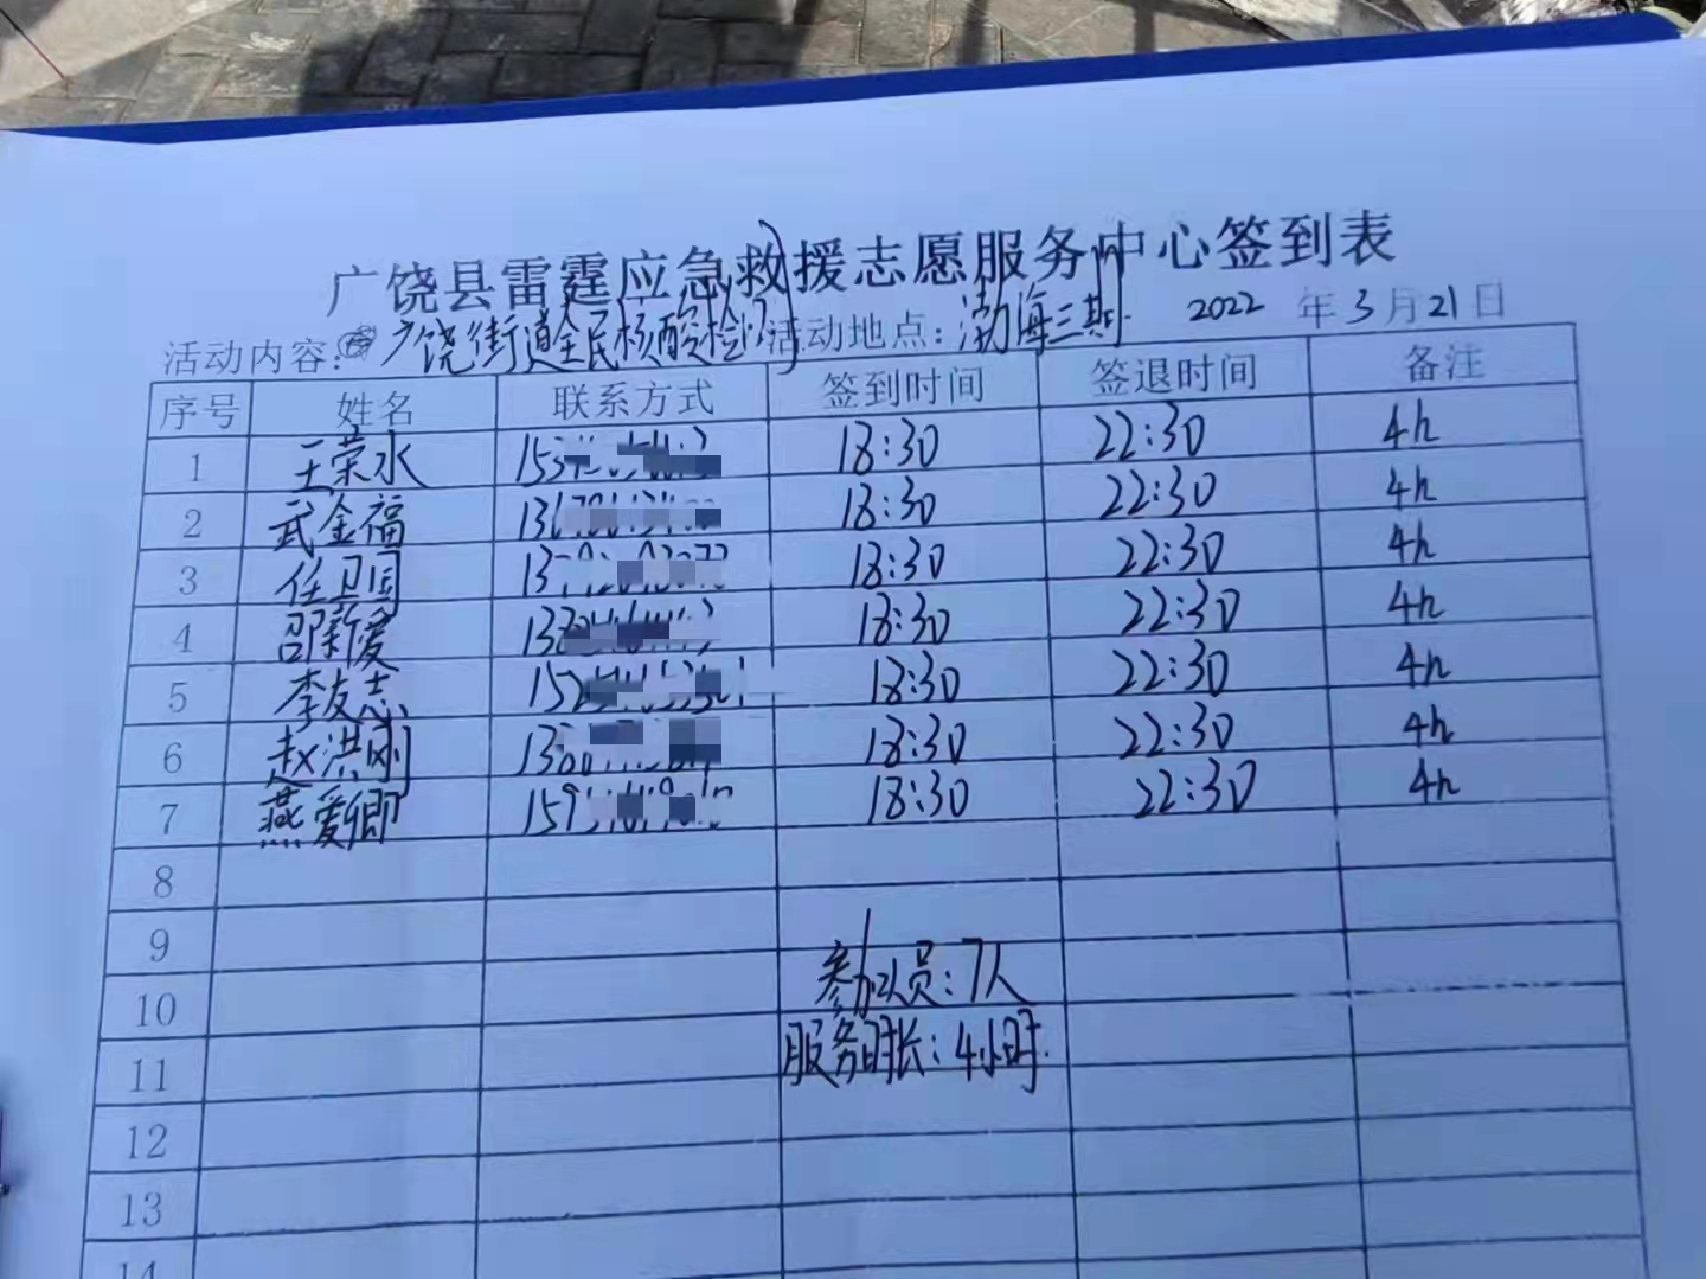 广饶县雷霆应急救援志愿服务中心签到表
活动内容: 广饶街道全民核酸检测 活动地点: 渤海三期. 2022 年 3 月 21 日
序号 姓名 联系方式 签到时间 签退时间 备注
1 王荣水 18:30 22:30 4h
2 武金福 18:30 22:30 4h
3 任卫国 18:30 22:30 4h
4 邵新爱 18:30 22:30 4h
5 李友志 18:30 22:30 4h
6 赵洪刚 18:30 22:30 4h
7 燕爱卿 18:30 22:30 4h
8
9
参加队员: 7人
10
服务时长: 4小时.
11
12
13
14